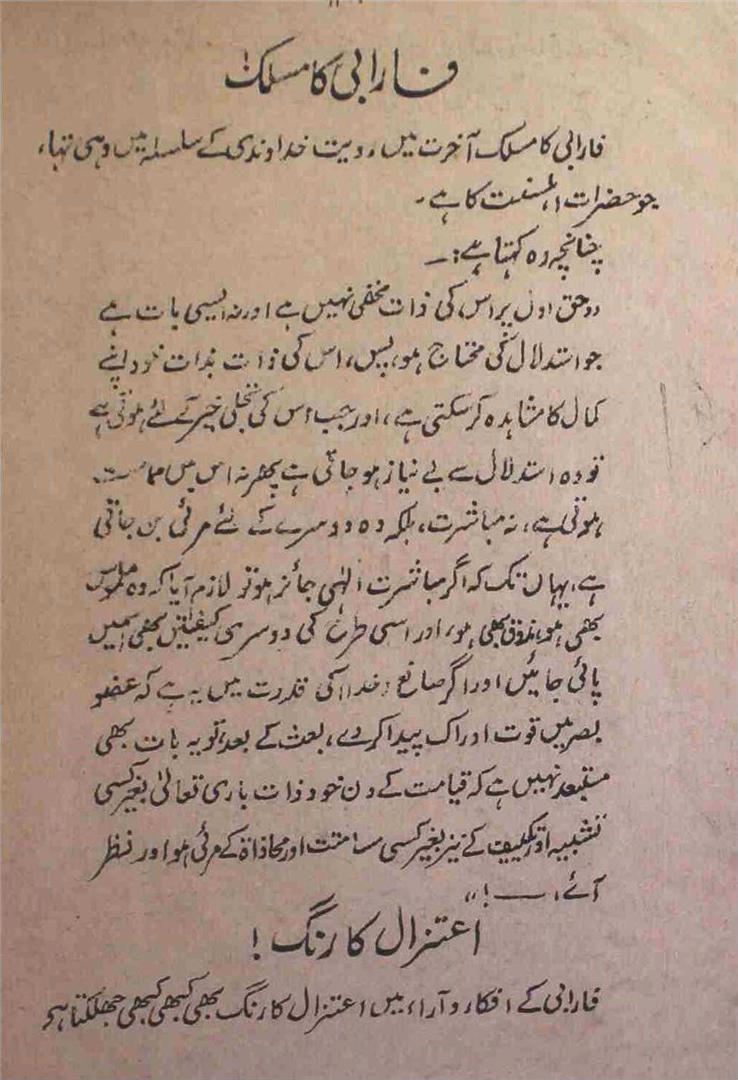 فارابی کا مسلک!
فارابی کا مسلک آخرت میں، رویت خداوندی کے سلسلہ میں وہی تھا،
جو حضرات اہلسنت کا ہے۔
چنانچہ وہ کہتا ہے:۔
"حق اول پر اس کی ذات مخفی نہیں ہے اور نہ ایسی بات ہے
جو استدلال کی محتاج ہو، پس، اس کی ذات بذات خود اپنے
کمال کا مشاہدہ کر سکتی ہے، اور جب اس کی تجلی غیر کے لئے ہوتی ہے
تو وہ استدلال سے بے نیاز ہو جاتی ہے پھر نہ اس میں مماست
ہوتی ہے، نہ مباشرت، بلکہ وہ دوسرے کے لئے مرئی بن جاتی
ہے، یہاں تک کہ اگر مباشرت الٰہی جائز ہو تو لازم آیا کہ وہ ملموس
بھی ہو، مذوق بھی ہو، اور اسی طرح کی دوسری کیفیتیں بھی اسمیں
پائی جائیں اور اگر صانع (خدا) کی قدرت میں یہ ہے کہ عضو
بصر میں قوت ادراک پیدا کر دے، بعث کے بعد، تو یہ بات بھی
مستبعد نہیں ہے کہ قیامت کے دن خود ذات باری تعالیٰ بغیر کسی
تشبیہ اور تکییف کے نیز بغیر کسی مسامتت اور محاذاۃ کے مرئی ہو اور نظر
آئے، ——!"
اعتزال کا رنگ!
فارابی کے افکار و آراء میں اعتزال کا رنگ بھی کبھی کبھی جھلکتا ہے